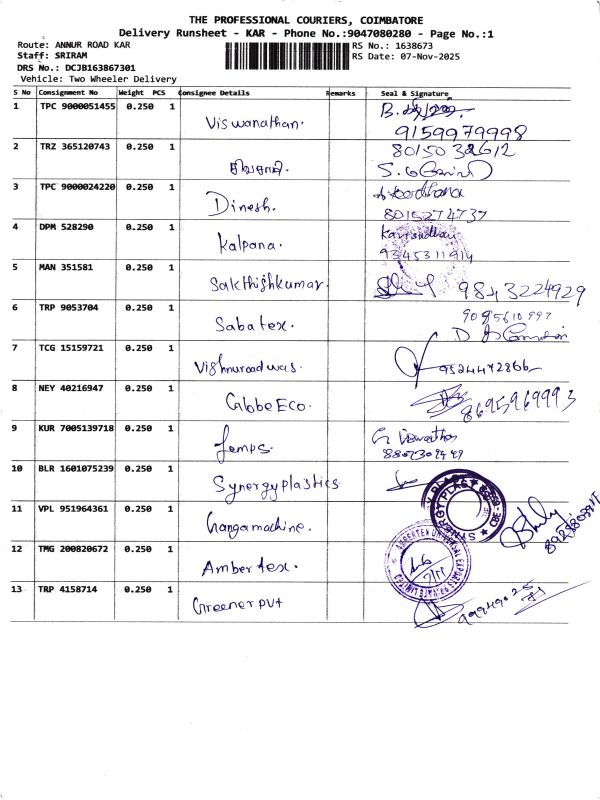 THE PROFESSIONAL COURIERS, COIMBATORE
Delivery Runsheet - KAR - Phone No.:9047080280 - Page No.:1
Route: ANNUR ROAD KAR
RS No.: 1638673
Staff: SRIRAM
RS Date: 07-Nov-2025
DRS No.: DCJB163867301
Vehicle: Two Wheeler Delivery
S No Consignment No Weight PCS Consignee Details Remarks Seal & Signature
1 TPC 9000051455 0.250 1 Viswanathan. B.
9159979998
2 TRZ 365120743 0.250 1 8015032612
3 TPC 9000024220 0.250 1 Dinesh.
8015274737
4 DPM 528290 0.250 1 Kalpana.
9345311914
5 MAN 351581 0.250 1 Sakthishkumar. 9843224929
6 TRP 9053704 0.250 1 Sabatex.
7 TCG 15159721 0.250 1 Vishnuroadwas. 9524472866
8 NEY 40216947 0.250 1 GlobeEco. 8695969993
9 KUR 7005139718 0.250 1 Jemps.
10 BLR 1601075239 0.250 1 Synergyplastics
SYNERGY PLASTICS
11 VPL 951964361 0.250 1 Gangamachine.
12 TMG 200820672 0.250 1 Ambertex.
13 TRP 4158714 0.250 1 Greenerpvt